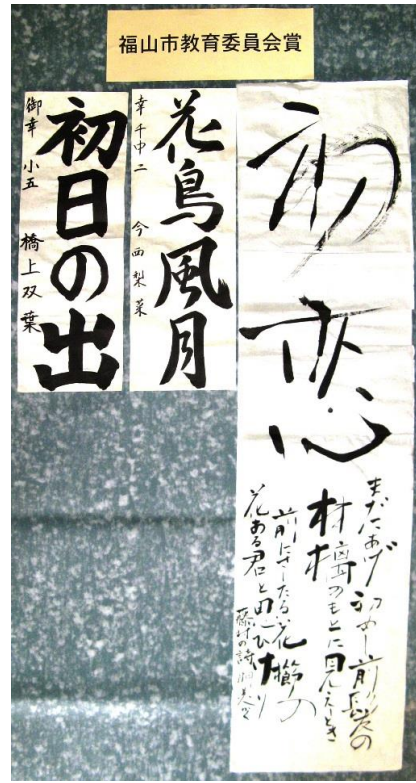 福山市教育委員会賞
初恋
まだあげ初めし前髪の
林檎のもとに見えしとき
前にさしたる花櫛の
花ある君と思ひけり
藤村の詩
花鳥風月
幸千中二 今西梨菜
初日の出
御幸小五 橋上双葉